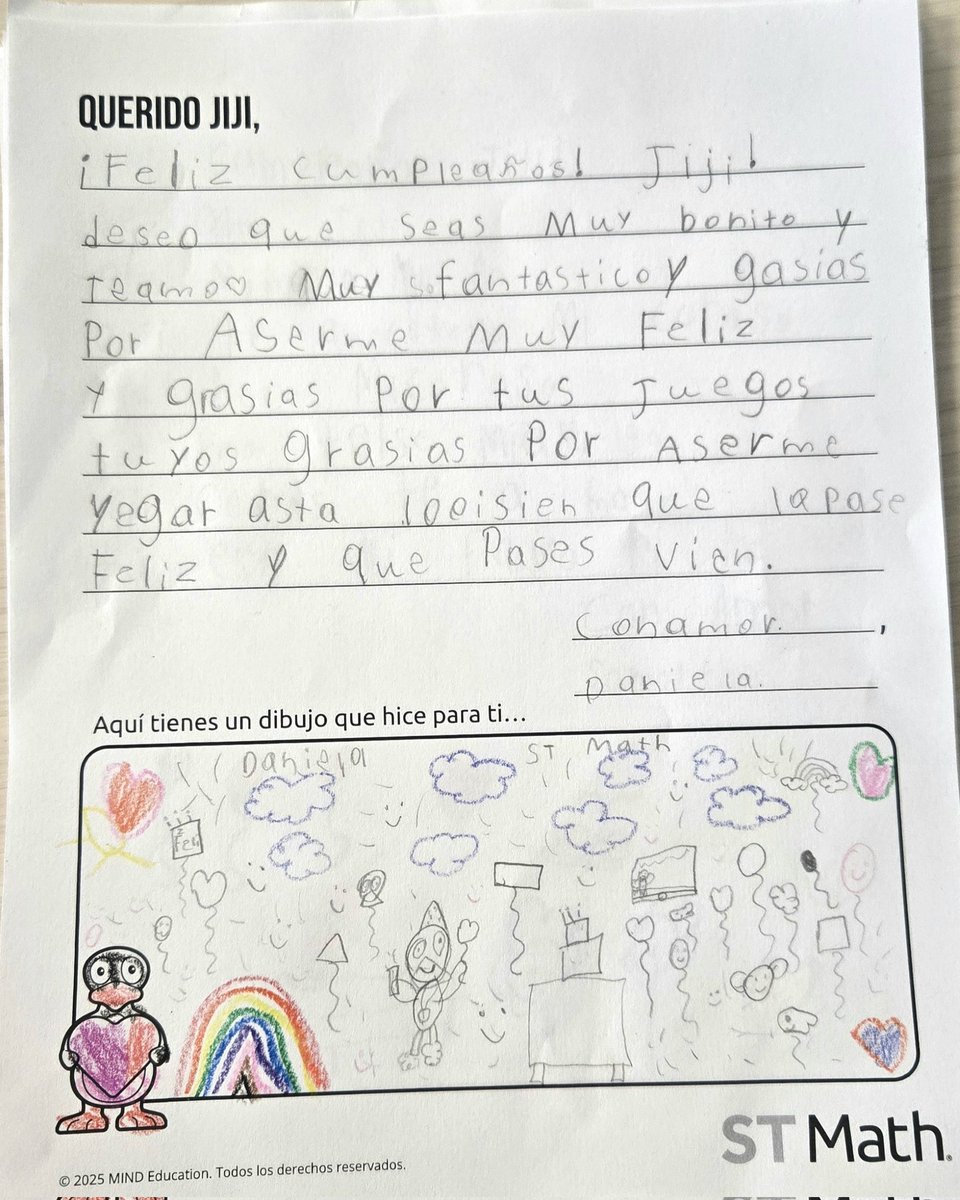 QUERIDO JIJI,
¡Feliz cumpleaños! Jiji!
deseo que seas Muy bonito y
Teamo♡ Muy fantastico y gasias
Por Aserme Muy Feliz
y grasias Por tus Juegos
tuyos grasias Por Aserme
yegar asta que lapase
Feliz y que Pases vien.
Conamor. ,
Daniela.
Aquí tienes un dibujo que hice para ti...
Daniela ST Math
Feli
ST Math.
© 2025 MIND Education. Todos los derechos reservados.